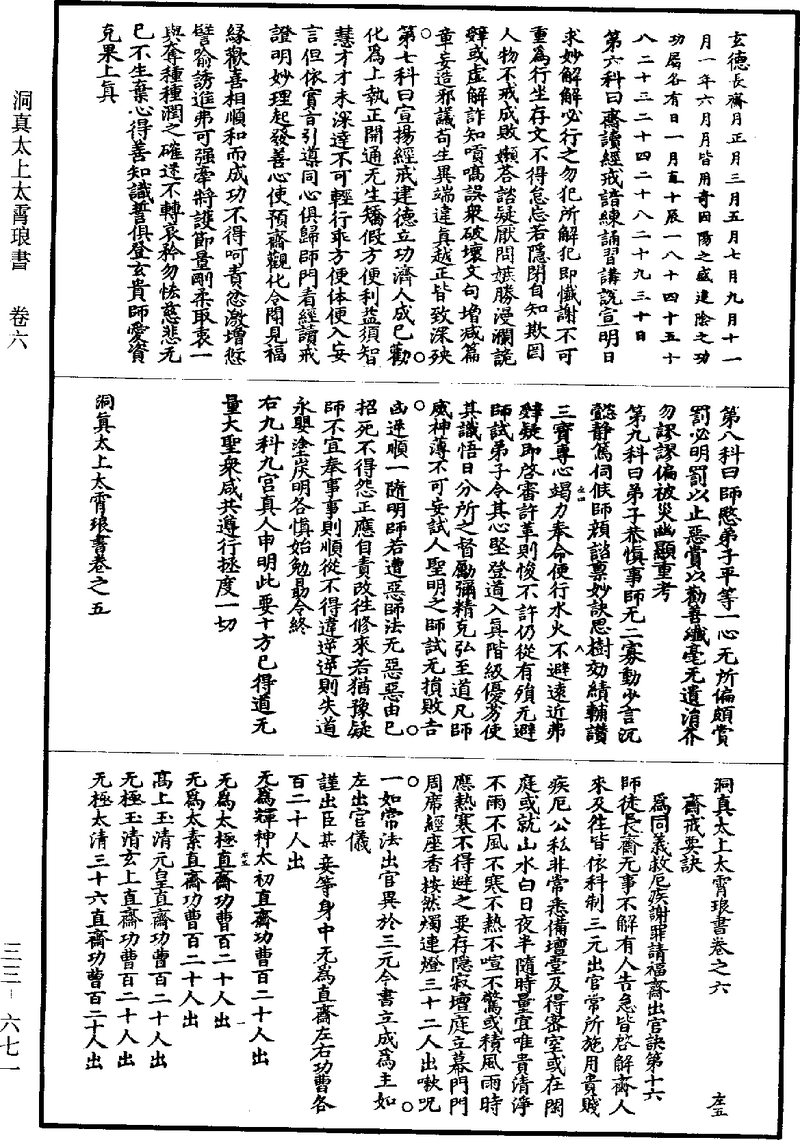 洞真太上太霄琅書　卷六
三三－六七一
玄德長齋月正月三月五月七月九月十一
月一年六月月皆用奇因陽之盛達陰之功
功屬各有日一月直十辰一八十四十五十
八二十三二十四二十八二十九三十日
第六科曰齋讀經戒諳練誦習講說宣明日
求妙解解必行之勿犯所解犯即懺謝不可
重為行坐存文不得怠忘若隱閉自知欺罔
人物不戒成敗嬾荅諮疑厭問嫉勝漫瀾詭
辭或虛解詐知嗔嗃誤衆破壞文句增減篇
章妄造邪議苟生異端違真越正皆致深殃
第七科曰宣揚經戒建德立功濟人成已勸
化為上執正開通无生矯假方便利益須智
慧才才未深達不可輕行乖方便体便入妄
言但依實言引導同心俱歸師門看經讀戒
證明妙理起發善心使預齋觀化令聞見福
緣歡喜相順和而成功不得呵責忿激增愆
譬喻誘進弗可强牽將護節量剛柔取衷一
與奪種種潤之確遂不轉哀矜勿怯慈悲无
已不生棄心得善知識誓俱登玄貴師愛資
克果上真
第八科曰師愍弟子平等一心无所偏頗賞
罰必明罰以止惡賞以勸善纖毫无遺涓芥
勿謬謬偏被災幽顯重考
第九科曰弟子恭慎事師无二寡動少言沉
懿静篤伺候師顔諮禀妙訣思樹効績輔讃
三寶專心竭力奉命便行水火不避遠近弗
辤疑即啓審許革則悛不許仍從有殞无避
師試弟子令其心堅登道入真階級優劣使
其識悟日分所之督勵彌精克弘至道凡師
威神薄不可妄試人聖明之師試无損敗吉
凶逆順一隨明師若遭惡師法无惡惡由已
招死不得怨正應自責改往修來若猶豫疑
師不宜奉事事則順從不得違逆逆則失道
永嬰塗炭明各慎始勉勗令終
右九科九宮真人申明此要十方已得道无
量大聖衆咸共遵行拯度一切
洞真太上太霄琅書卷之五
洞真太上太霄琅書卷之六　左五
齋戒要訣
為同義救厄疾謝罪請福齋出官訣第十六
師徒長齋无事不解有人告急皆啓解齋人
來及徃皆依科制三元出官常所施用貴賤
疾厄公私非常悉備壇堂及得審室或在閑
庭或就山水白日夜半隨時量宜唯貴清淨
不雨不風不寒不熱不喧不驚或積風雨時
應熱寒不得避之要存隱寂壇庭立幕門門
周席經座香按然燭連燈三十二人出啾呪
一如常法出官異於三元今書立成為主如
左出官儀
謹出臣某妾等身中无為直齋左右功曹各
百二十人出
无為輝神太初直齋功曹百二十人出
无為太極直齋功曹百二十人出
无為太素直齋功曹百二十人出
高上玉清元皇直齋功曹百二十人出
无極玉清玄上直齋功曹百二十人出
无極太清三十六直齋功曹百二十人出